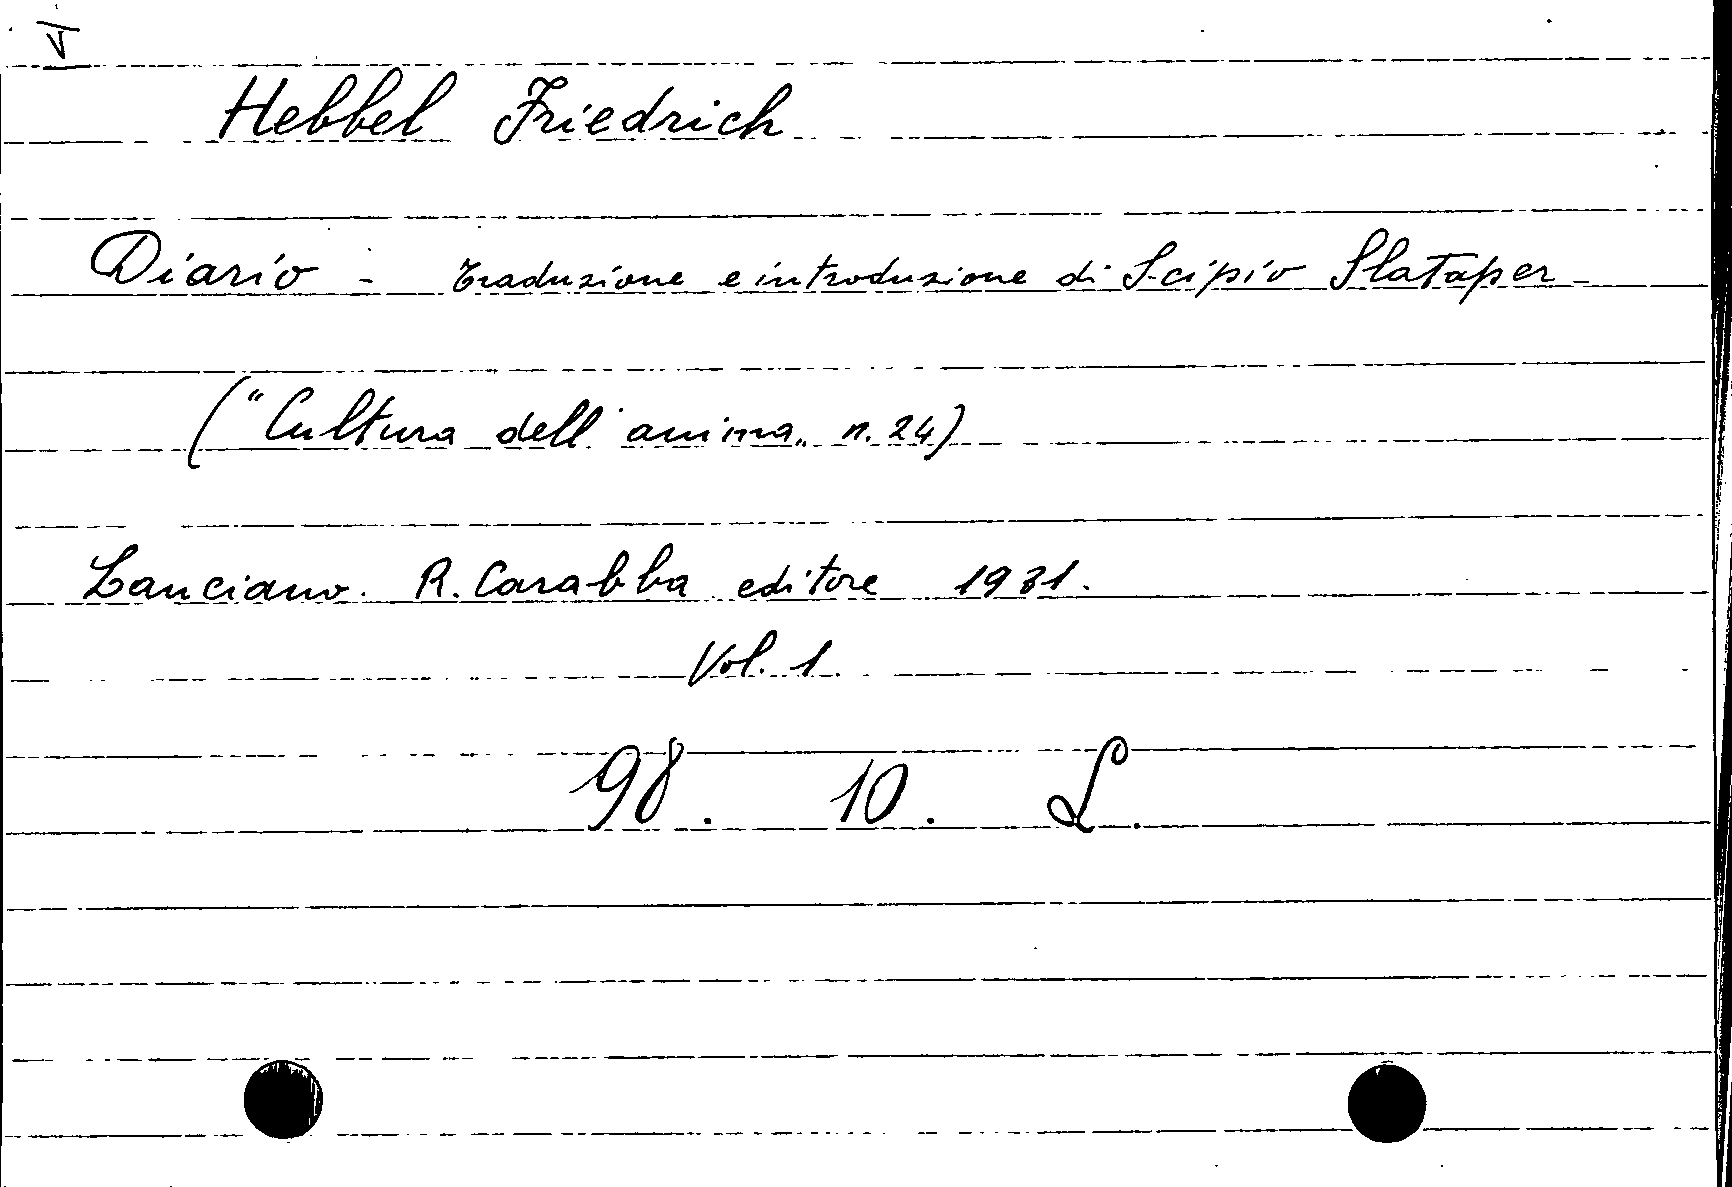 V
Hebbel Friedrich
Diario - Traduzione e introduzione di Scipio Slataper -
("Cultura dell'anima„ n. 24)
Lanciano. R. Carabba editore 1931.
Vol. 1.
98. 10. L.